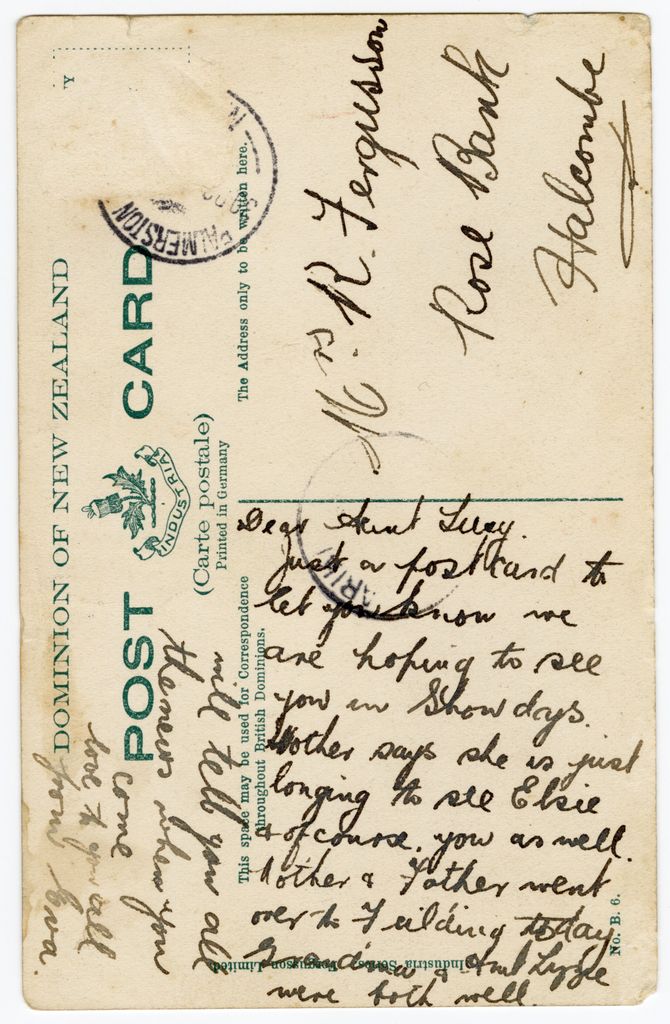 DOMINION OF NEW ZEALAND
POST CARD
INDUSTRIA
(Carte postale)
Printed in Germany
This space may be used for Correspondence
throughout British Dominions.
The Address only to be written here.
PALMERSTON N
Mrs R. Fergusson
Rose Bank
Halcombe
Dear Aunt Lucy.
Just a post card to
let you know we
are hoping to see
you in Show days.
Mother says she is just
longing to see Elsie
& of course, you as well.
Mother & Father went
over to Feilding today
Grandma & Aunt Lizzie
were both well.
will tell you all
the news when you
come
love to you all
from Eva.
Industria Series, Fergusson Limited.
No. B. 6.